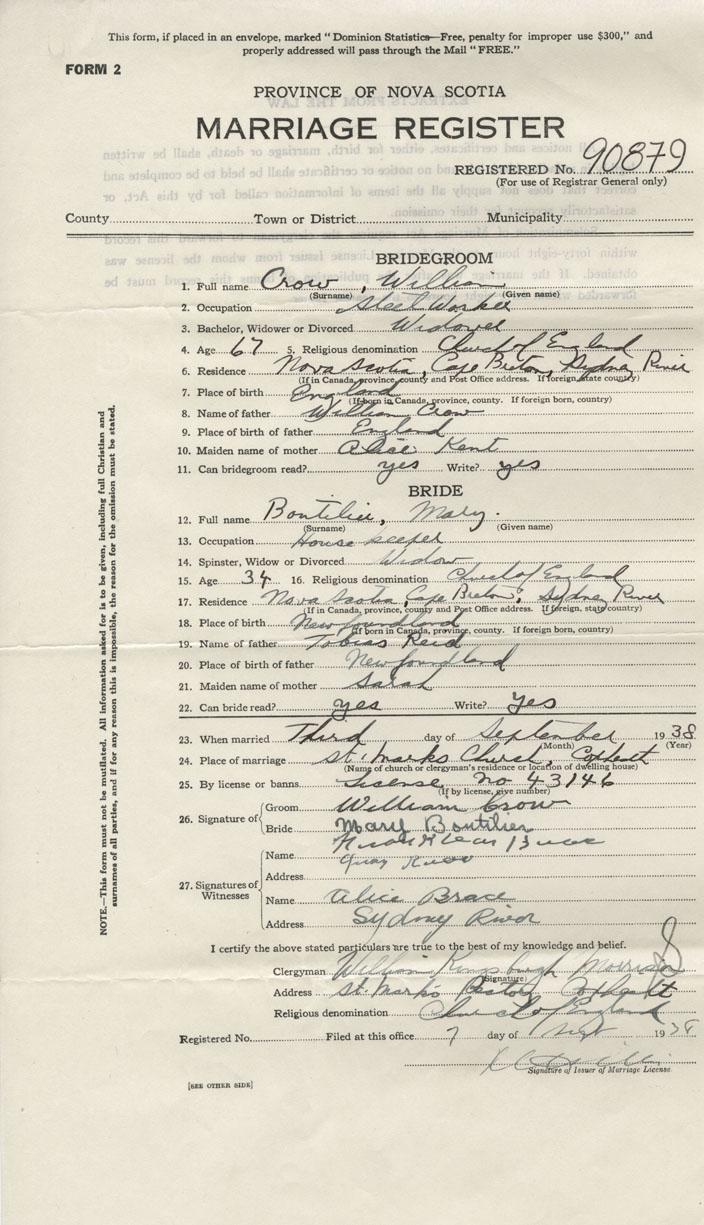 This form, if placed in an envelope, marked "Dominion Statistics—Free, penalty for improper use $300," and
properly addressed will pass through the Mail "FREE."
FORM 2
PROVINCE OF NOVA SCOTIA
MARRIAGE REGISTER
REGISTERED No. 90879
(For use of Registrar General only)
County Town or District Municipality
BRIDEGROOM
1. Full name Crow, William
(Surname) (Given name)
2. Occupation Steel Worker
3. Bachelor, Widower or Divorced Widower
4. Age 67 5. Religious denomination Church of England
6. Residence Nova Scotia, Cape Breton, Sydney River
(If in Canada, province, county and Post Office address. If foreign, state country)
7. Place of birth England
(If born in Canada, province, county. If foreign born, country)
8. Name of father William Crow
9. Place of birth of father England
10. Maiden name of mother Alice Kent
11. Can bridegroom read? yes Write? yes
BRIDE
12. Full name Bontilier, Mary.
(Surname) (Given name)
13. Occupation House keeper
14. Spinster, Widow or Divorced Widow
15. Age 34 16. Religious denomination Church of England
17. Residence Nova Scotia, Cape Breton, Sydney River
(If in Canada, province, county and Post Office address. If foreign, state country)
18. Place of birth Newfoundland
(If born in Canada, province, county. If foreign born, country)
19. Name of father Tobias Reid
20. Place of birth of father Newfoundland
21. Maiden name of mother Sarah
22. Can bride read? yes Write? Yes
23. When married Third day of September 1938
(Month) (Year)
24. Place of marriage St. Marks Church, Coxheath
(Name of church or clergyman's residence or location of dwelling house)
25. By license or banns License No 43146
(If by license, give number)
26. Signature of Groom William Crow
Bride Mary Bontilier
27. Signatures of Witnesses
Name
Address
Name Alice Brace
Address Sydney River
I certify the above stated particulars are true to the best of my knowledge and belief.
Clergyman William Kingsburgh Morrison
(Signature)
Address St. Marks Rectory Coxheath
Religious denomination Church of England
Registered No. Filed at this office 7 day of Sept 1938
Signature of Issuer of Marriage License.
[SEE OTHER SIDE]
NOTE.—This form must not be mutilated. All information asked for is to be given, including full Christian and
surnames of all parties, and if for any reason this is impossible, the reason for the omission must be stated.